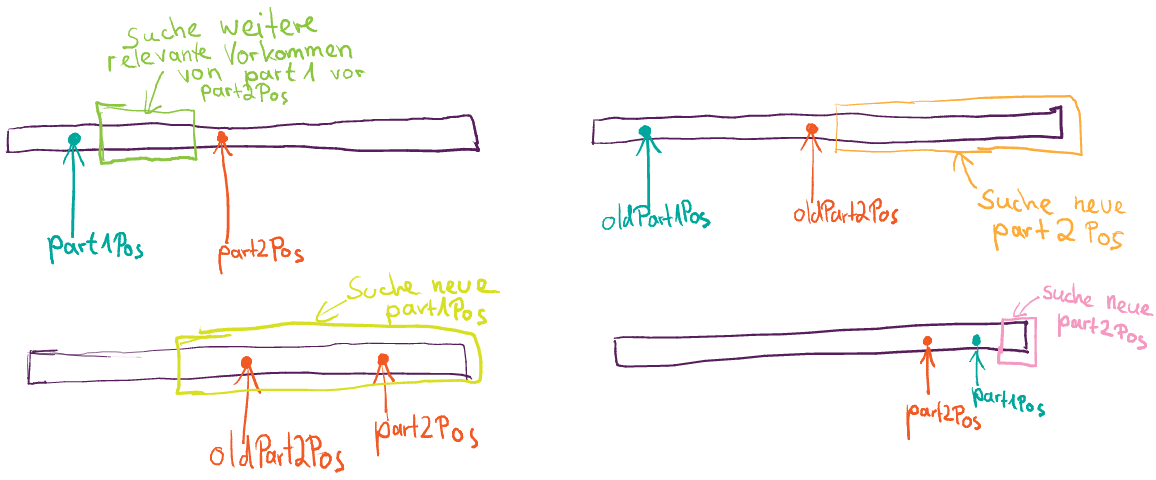 Suche weitere
relevante Vorkommen
von part1 vor
part2Pos
part1Pos
part2Pos
oldPart1Pos
oldPart2Pos
Suche neue
part2Pos
Suche neue
part1Pos
oldPart2Pos
part2Pos
suche neue
part2Pos
part2Pos
part1Pos